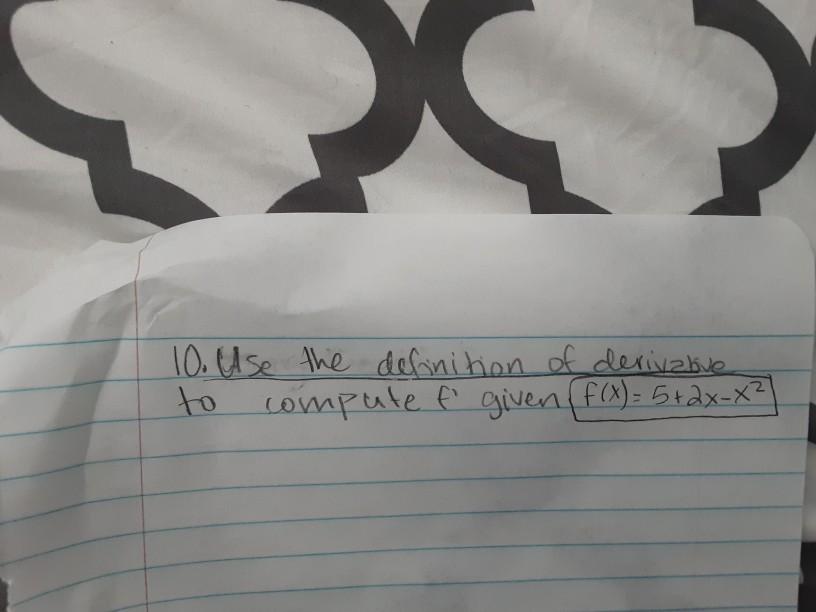 10. Use the definition of derivative
to compute f' given f(x) = 5+2x-x²